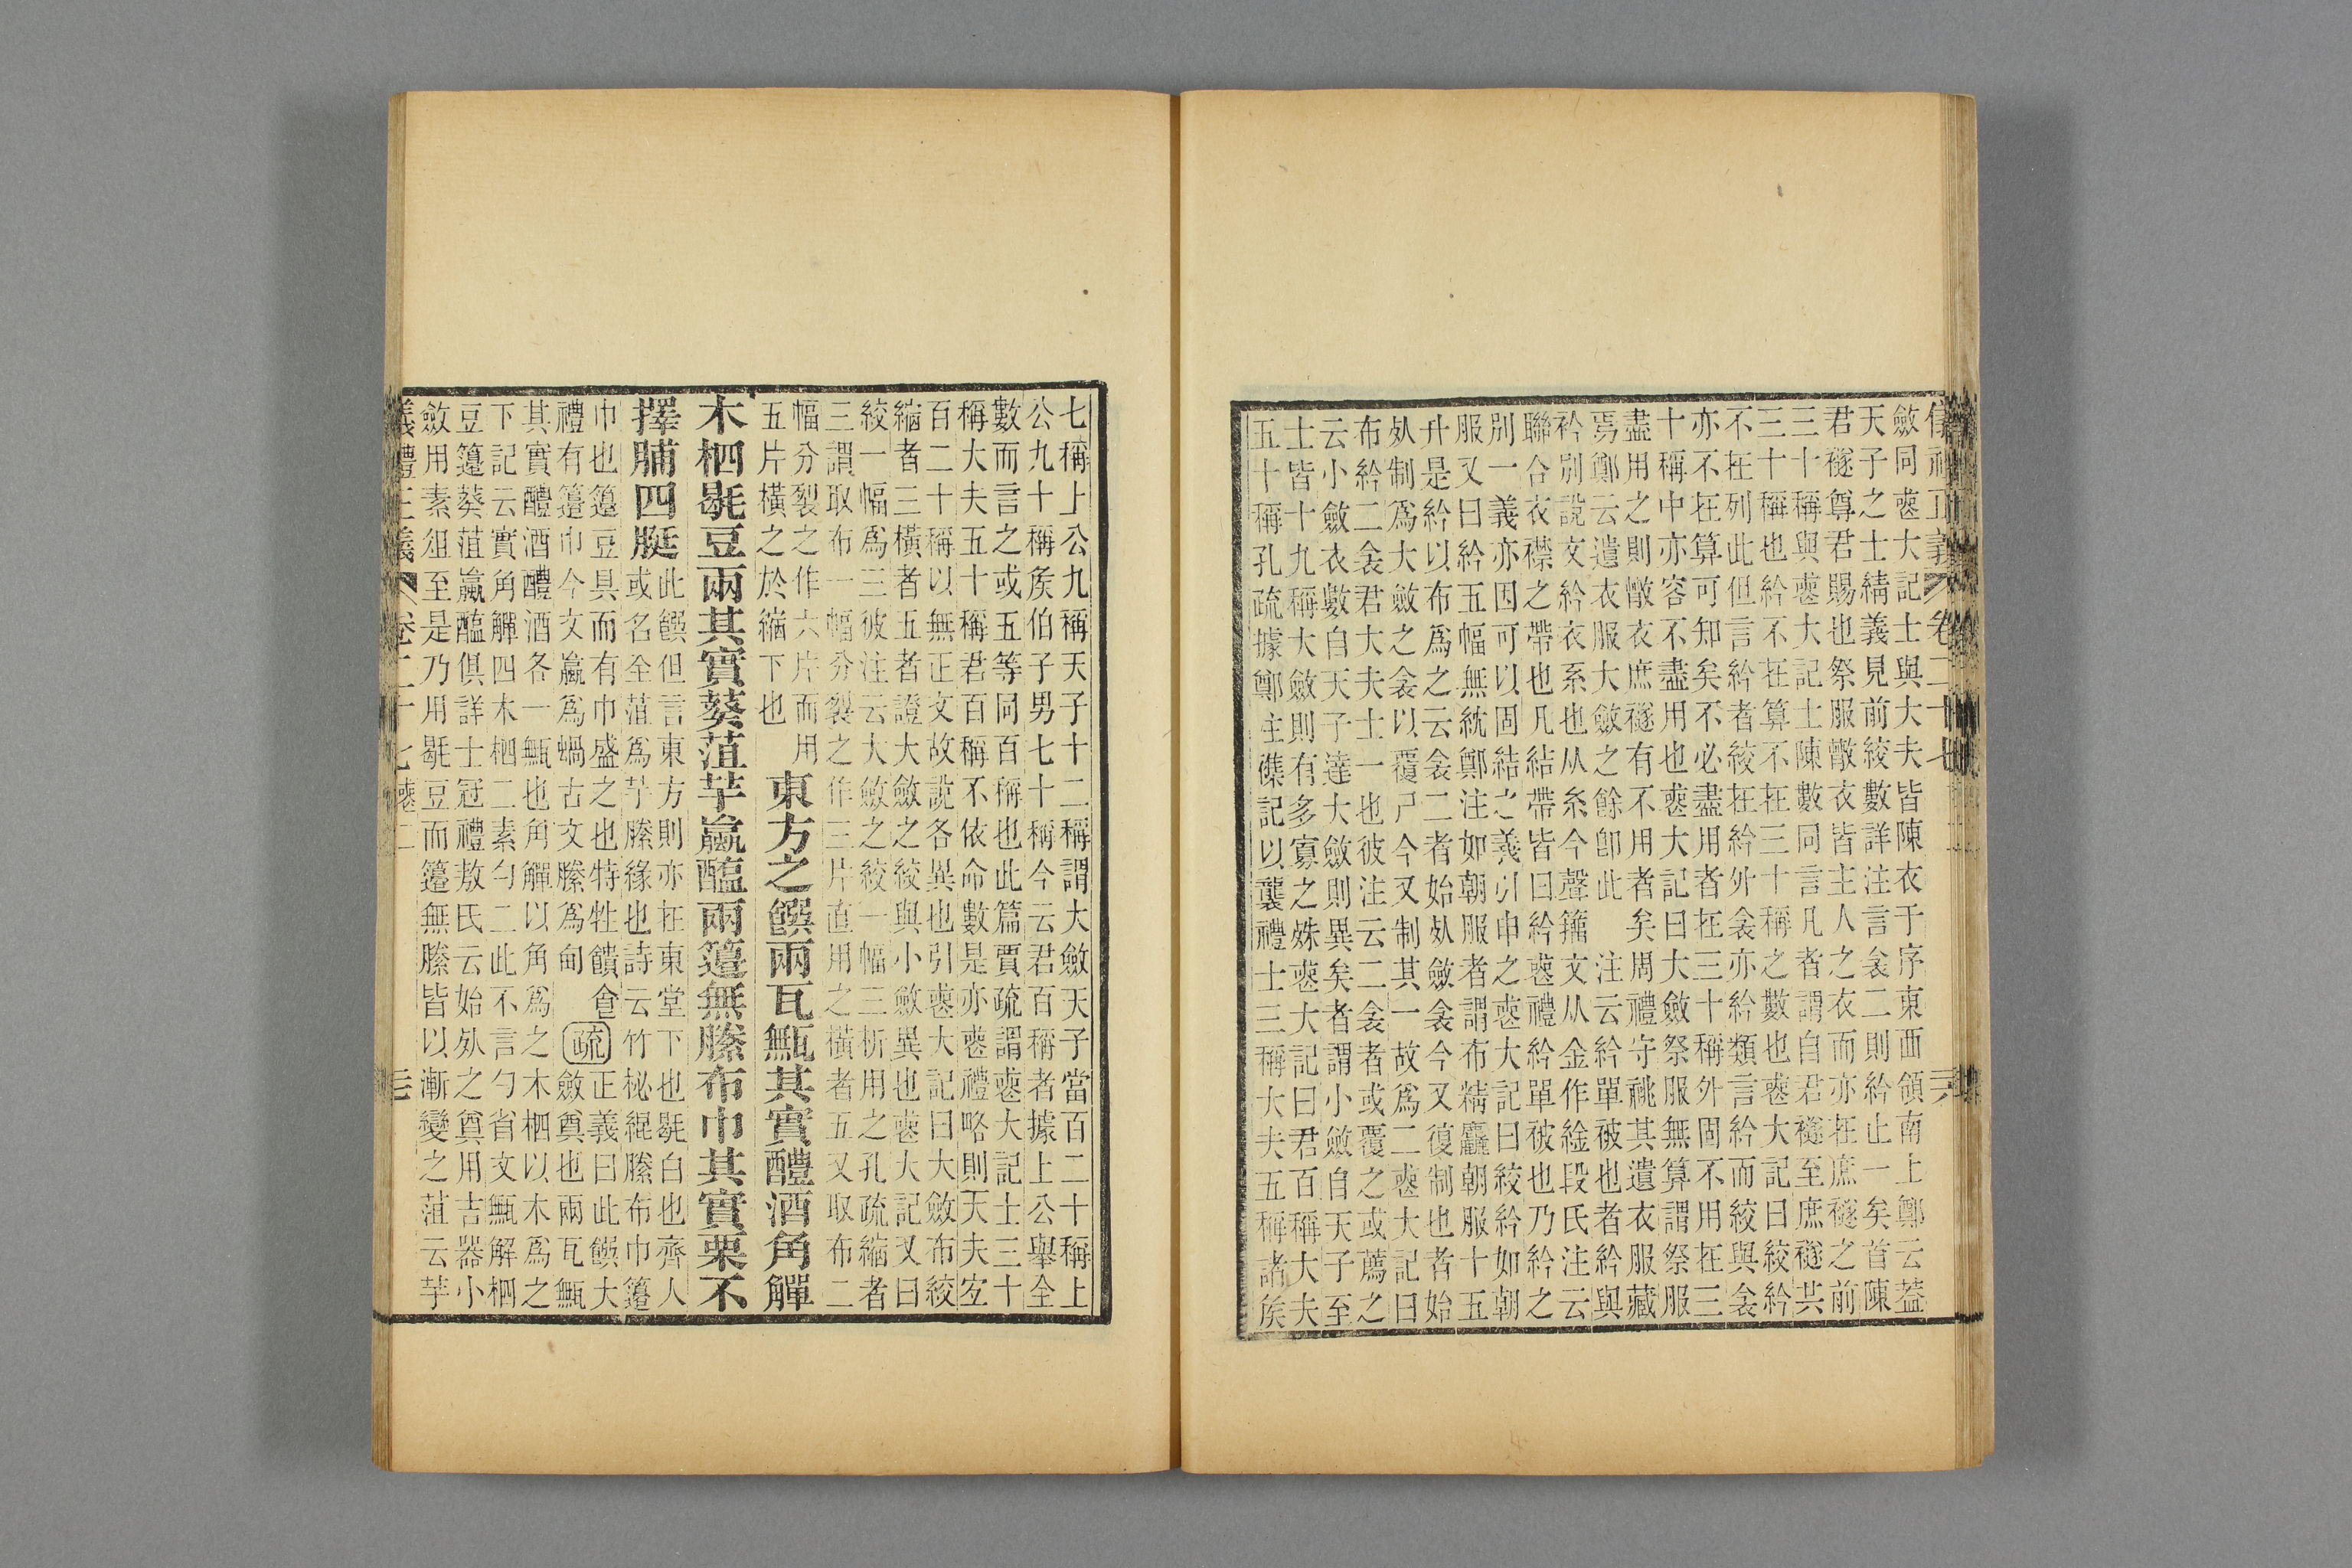 儀禮正義 卷二十七
斂同䘮大記士與大夫皆陳衣于序東西領南上鄭云葢
天子之士綪義見前絞數詳注言衾二則紟止一矣首陳
君襚尊君賜也祭服散衣皆主人之衣而亦在庶襚之前
三十稱與䘮大記士陳數同言凡者謂自君襚至庶襚共
三十稱也紟不在算不在三十稱之數也䘮大記曰絞紟
不在列此但言紟者絞在紟外衾亦紟類言紟而絞與衾
亦不在算可知矣不必盡用者在三十稱外固不用在三
十稱中亦容不盡用也䘮大記曰大斂祭服無算謂祭服
盡用之則散衣庶襚有不用者矣周禮守祧其遺衣服藏
焉鄭云遺衣服大斂之餘卽此 注云紟單被也者紟與
衿別說文紟衣系也从糸今聲籀文从金作䋮段氏注云
聯合衣襟之帶也凡結帶皆曰紟䘮禮紟單被也乃紟之
別一義亦因可以固結之義引申之䘮大記曰絞紟如朝
服又曰紟五幅無紞鄭注如朝服者謂布精麤朝服十五
升是紟以布爲之云衾二者始𣦸斂衾今又復制也者始
𣦸制爲大斂之衾以覆尸今又制其一故爲二䘮大記曰
布紟二衾君大夫士一也彼注云二衾者或覆之或薦之
云小斂衣數自天子達大斂則異矣者謂小斂自天子至
士皆十九稱大斂則有多寡之殊䘮大記曰君百稱大夫
五十稱孔疏據鄭注襍記以襲禮士三稱大夫五稱諸侯
七稱上公九稱天子十二稱謂大斂天子當百二十稱上
公九十稱侯伯子男七十稱今云君百稱者據上公舉全
數而言之或五等同百稱也此篇賈疏謂䘮大記士三十
稱大夫五十稱君百稱不依命數是亦䘮禮略則天夫宐
百二十稱以無正文故說各異也引䘮大記曰大斂布絞
縮者三橫者五者證大斂之絞與小斂異也䘮大記又曰
絞一幅爲三彼注云大斂之絞一幅三析用之孔疏縮者
三謂取布一幅分裂之作三片直用之橫者五又取布二
幅分裂之作六片而用
五片橫之於縮下也
東方之饌兩瓦甒其實醴酒角觶
木柶毼豆兩其實葵菹芋蠃醢兩籩無縢布巾其實栗不
擇脯四脡
此饌但言東方則亦在東堂下也毼白也齊人
或名全菹爲芋縢緣也詩云竹柲緄縢布巾籩
巾也籩豆具而有巾盛之也特牲饋食
禮有籩巾今文蠃爲蝸古文縢爲甸
疏
正義曰此饌大
斂奠也兩瓦甒
其實醴酒醴酒各一甒也角觶以角爲之木柶以木爲之
下記云實角觶四木柶二素勺二此不言勺省文甒解柶
豆籩葵菹蠃醢俱詳士冠禮敖氏云始𣦸之奠用吉器小
斂用素俎至是乃用毼豆而籩無縢皆以漸變之菹云芋